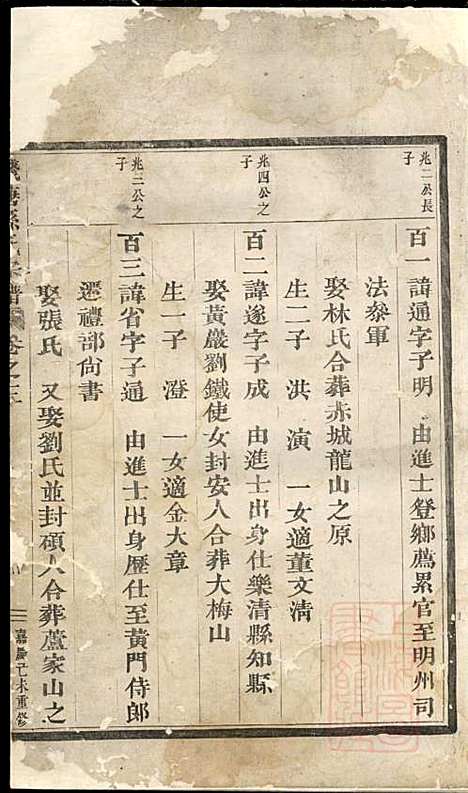 兆二公長
子
百一諱通字子明 由進士登鄉薦累官至明州司
法叅軍
娶林氏合葬赤城龍山之原
生二子 洪 演 一女適董文清
兆四公之
子
百二諱遂字子成 由進士出身仕樂清縣知縣
娶黃嚴劉鐵使女封安人合葬大梅山
生一子 澄 一女適金大章
兆二公之
子
百三諱省字子通 由進士出身歷仕至黃門侍郎
遷禮部尙書
娶張氏 又娶劉氏並封碩人合葬蘆家山之
孫氏宗譜 卷之
嘉慶己未重修